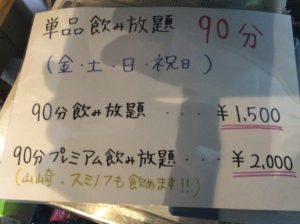 単品飲み放題 90分
(金・土・日・祝日)
90分飲み放題・・・¥1,500
90分プレミアム飲み放題・・・¥2,000
(山崎、スミノフも飲めます!!)